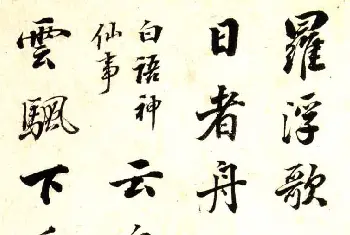 羅浮歌
日者舟
白語神
仙事
云
雲颿下